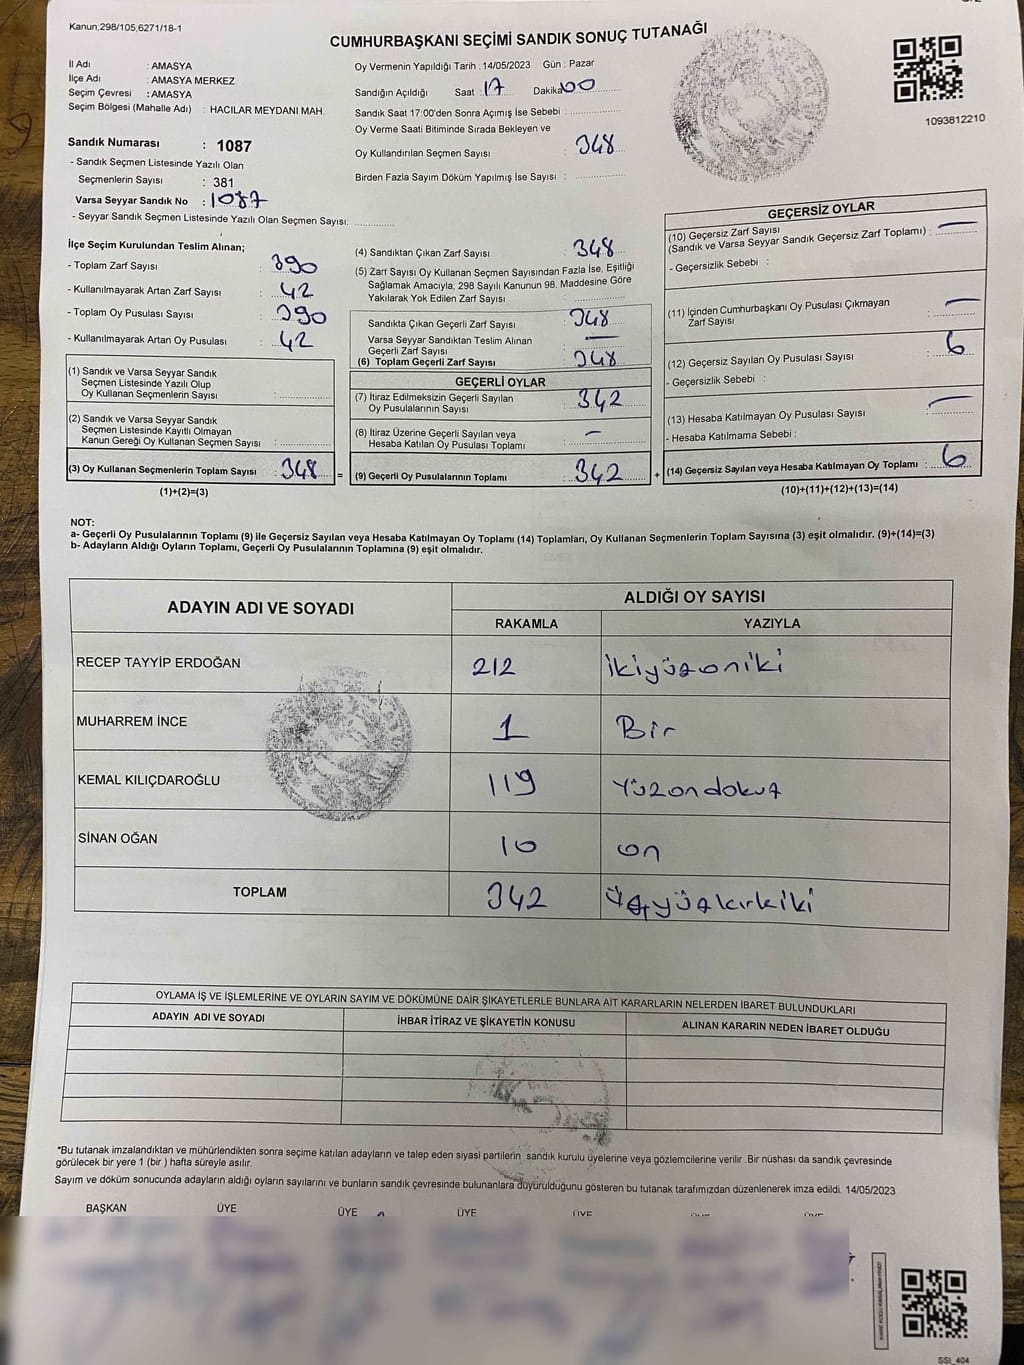 Kanun;298/105,6271/18-1
CUMHURBAŞKANI SEÇİMİ SANDIK SONUÇ TUTANAĞI
İl Adı : AMASYA
İlçe Adı : AMASYA MERKEZ
Seçim Çevresi : AMASYA
Seçim Bölgesi (Mahalle Adı) : HACILAR MEYDANI MAH.
Oy Vermenin Yapıldığı Tarih : 14/05/2023 Gün : Pazar
Sandığın Açıldığı Saat : 17 Dakika 00
Sandık Saat 17:00'den Sonra Açımış İse Sebebi :
Oy Verme Saati Bitiminde Sırada Bekleyen ve
Oy Kullandırılan Seçmen Sayısı : 348
Birden Fazla Sayım Döküm Yapılmış İse Sayısı :
1093812210
Sandık Numarası : 1087
- Sandık Seçmen Listesinde Yazılı Olan
Seçmenlerin Sayısı : 381
Varsa Seyyar Sandık No : 1087
- Seyyar Sandık Seçmen Listesinde Yazılı Olan Seçmen Sayısı:
İlçe Seçim Kurulundan Teslim Alınan;
- Toplam Zarf Sayısı : 390
- Kullanılmayarak Artan Zarf Sayısı : 42
- Toplam Oy Pusulası Sayısı : 390
- Kullanılmayarak Artan Oy Pusulası : 42
(1) Sandık ve Varsa Seyyar Sandık
Seçmen Listesinde Yazılı Olup
Oy Kullanan Seçmenlerin Sayısı :
(2) Sandık ve Varsa Seyyar Sandık
Seçmen Listesinde Kayıtlı Olmayan
Kanun Gereği Oy Kullanan Seçmen Sayısı :
(3) Oy Kullanan Seçmenlerin Toplam Sayısı : 348 =
(1)+(2)=(3)
(4) Sandıktan Çıkan Zarf Sayısı : 348
(5) Zarf Sayısı Oy Kullanan Seçmen Sayısından Fazla İse, Eşitliği
Sağlamak Amacıyla; 298 Sayılı Kanunun 98. Maddesine Göre
Yakılarak Yok Edilen Zarf Sayısı :
Sandıkta Çıkan Geçerli Zarf Sayısı : 348
Varsa Seyyar Sandıktan Teslim Alınan
Geçerli Zarf Sayısı : —
(6) Toplam Geçerli Zarf Sayısı : 348
GEÇERLİ OYLAR
(7) İtiraz Edilmeksizin Geçerli Sayılan
Oy Pusulalarının Sayısı : 342
(8) İtiraz Üzerine Geçerli Sayılan veya
Hesaba Katılan Oy Pusulası Toplamı : –
(9) Geçerli Oy Pusulalarının Toplamı : 342 +
GEÇERSİZ OYLAR
(10) Geçersiz Zarf Sayısı
(Sandık ve Varsa Seyyar Sandık Geçersiz Zarf Toplamı) : —
- Geçersizlik Sebebi :
(11) İçinden Cumhurbaşkanı Oy Pusulası Çıkmayan
Zarf Sayısı : —
(12) Geçersiz Sayılan Oy Pusulası Sayısı : 6
- Geçersizlik Sebebi :
(13) Hesaba Katılmayan Oy Pusulası Sayısı : —
- Hesaba Katılmama Sebebi :
(14) Geçersiz Sayılan veya Hesaba Katılmayan Oy Toplamı : 6
(10)+(11)+(12)+(13)=(14)
NOT:
a- Geçerli Oy Pusulalarının Toplamı (9) ile Geçersiz Sayılan veya Hesaba Katılmayan Oy Toplamı (14) Toplamları, Oy Kullanan Seçmenlerin Toplam Sayısına (3) eşit olmalıdır. (9)+(14)=(3)
b- Adayların Aldığı Oyların Toplamı, Geçerli Oy Pusulalarının Toplamına (9) eşit olmalıdır.
ADAYIN ADI VE SOYADI
ALDIĞI OY SAYISI
RAKAMLA YAZIYLA
RECEP TAYYİP ERDOĞAN 212 ikiyüzoniki
MUHARREM İNCE 1 Bir
KEMAL KILIÇDAROĞLU 119 Yüzondokuz
SİNAN OĞAN 10 on
TOPLAM 342 üçyüzkırkiki
OYLAMA İŞ VE İŞLEMLERİNE VE OYLARIN SAYIM VE DÖKÜMÜNE DAİR ŞİKAYETLERLE BUNLARA AİT KARARLARIN NELERDEN İBARET BULUNDUKLARI
ADAYIN ADI VE SOYADI İHBAR İTİRAZ VE ŞİKAYETİN KONUSU ALINAN KARARIN NEDEN İBARET OLDUĞU
*Bu tutanak imzalandıktan ve mühürlendikten sonra seçime katılan adayların ve talep eden siyasi partilerin sandık kurulu üyelerine veya gözlemcilerine verilir .Bir nüshası da sandık çevresinde
görülecek bir yere 1 (bir ) hafta süreyle asılır.
Sayım ve döküm sonucunda adayların aldığı oyların sayılarını ve bunların sandık çevresinde bulunanlara duyurulduğunu gösteren bu tutanak tarafımızdan düzenlenerek imza edildi. 14/05/2023
BAŞKAN ÜYE ÜYE ÜYE ÜYE
SSI_404